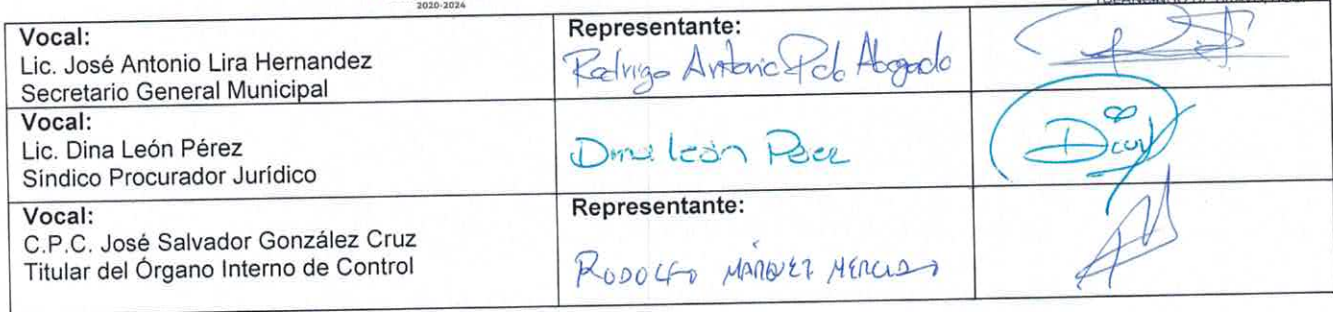 2020-2024
Vocal:
Lic. José Antonio Lira Hernandez
Secretario General Municipal
Representante:
Rodrigo Antonio Abogado
Vocal:
Lic. Dina León Pérez
Síndico Procurador Jurídico
Dina León Pérez
Vocal:
C.P.C. José Salvador González Cruz
Titular del Órgano Interno de Control
Representante:
RODOLFO MÁRQUEZ MERCADO